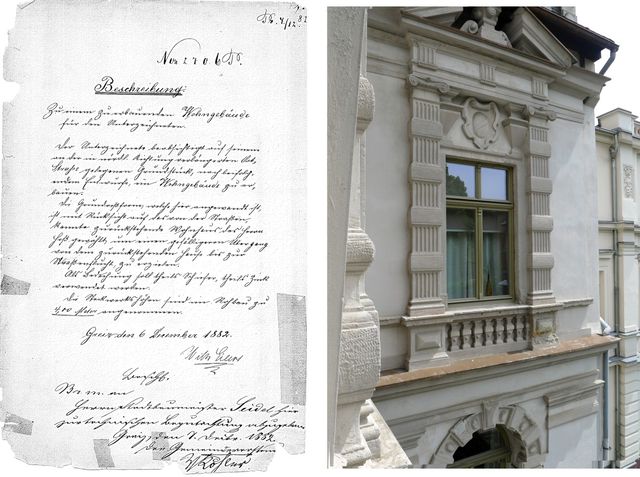 No 2706 B.
Beschreibung:
Zu einem zu erbauenden Wohngebäude
für den Unterzeichneten.
Der Unterzeichnete beabsichtigt auf seinem
an der in nördl. Richtung verlängerten
Straße gelegenen Grundstück, nach beifolg-
endem Entwurfe, ein Wohngebäude zu er-
bauen.
Die Grundrißform, welche hier angewandt ist,
ist mit Rücksicht auf das von der Straßen-
zurückstehende Wohnhaus des Herrn
gewählt, um einen gefälligeren Übergang
von dem zurückstehenden Hause bis zur
Straßenflucht, zu erzielen.
Als Bedachung soll theils Schiefer, theils Zink
verwendet werden.
Die Stockwerkshöhen sind im Rohbau zu
4,00 Meter angenommen.
Greiz, den 6 Dezember 1882.
Beschl.
Br. m. an
Herrn Stadtbaumeister Seidel hier
zur technischen Begutachtung abzugeben
Greiz, den 7. Dezbr. 1882.
Der Gemeindevorstand